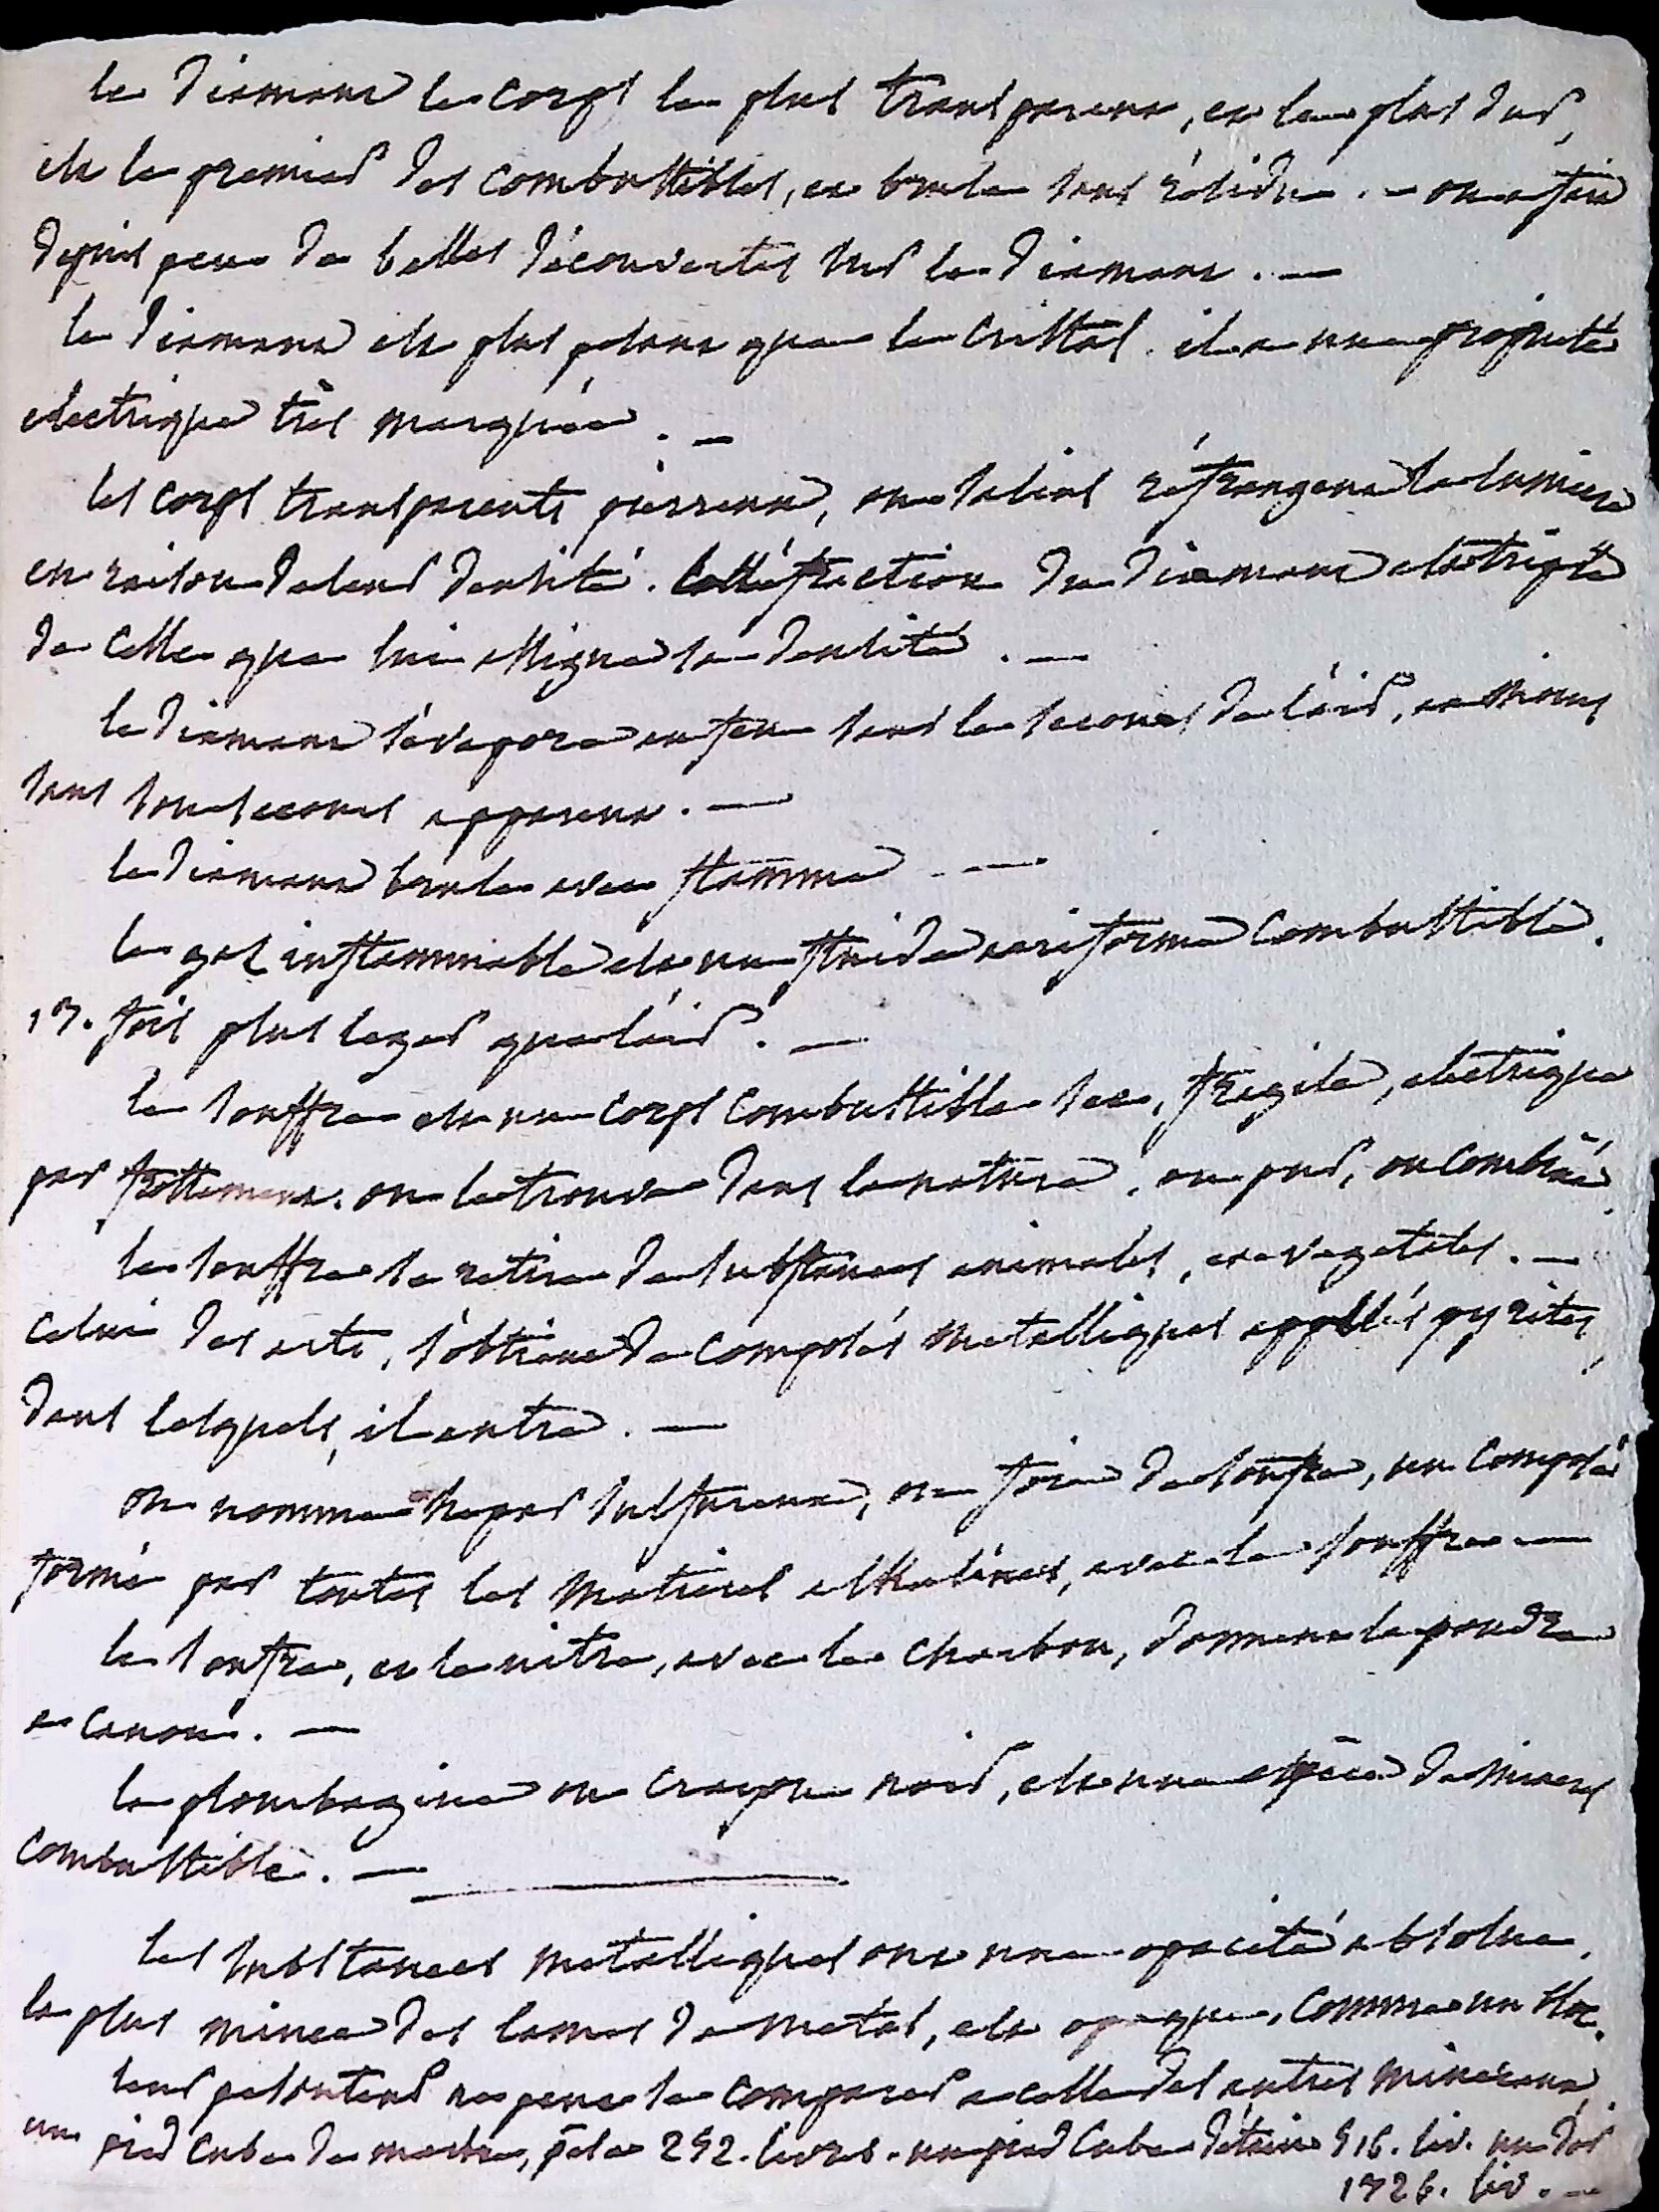 le diamant le corps le plus transparent, et le plus dur,
est le premier des combustibles, et brule sans résidu. - on a fait
depuis peu de belles découvertes sur le diamant. —
le diamant est plus pesant que le cristal. il a une propriété
electrique très marquée. —
les corps transparents pierreux, ou salins réfrangent la lumiere
en raison de leur densité. la réfraction du diamant est triple
de celle que lui assigne sa densité. —
le diamant s'évapore au feu sans le secours de l'air, au moins
sans son secours apparent. —
le diamant brule avec flamme - —
le gaz inflammable est un fluide aeriforme combustible.
13. fois plus leger que l'air. —
le souffre est un corps combustible sec, fragile, electrique
par frottement. on le trouve dans la nature, ou pur, ou combiné.
le souffre se retire de substances animales, et vegetales. —
celui des arts, s'obtient de composés metalliques appellés pyrites,
dans lesquels, il entre. —
on nomme hepar sulfureux, ou foie de soufre, un composé
formé par toutes les matieres alkalines, avec le souffre —
le soufre, et le nitre, avec le charbon, donnent la poudre
a canon. —
la plombagine ou crayon noir, est une espèce de mineral
combustible. —
les substances metalliques ont une opacité absolue.
la plus mince des lames de metal, est opaque, comme un bloc.
leur pesanteur ne peut se comparer a celle des autres mineraux
un pied cube de marbre, pèse 252. livres. un pied cube d'étain 516. liv. un d'or
1326. liv. —